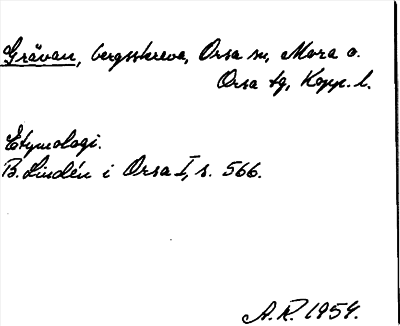 Grävan, bergsskreva, Orsa sn, Mora o.
Orsa tg, Kopp. l.
Etymologi.
B. Lindén i Orsa I, s. 566.
A.R. 1954.